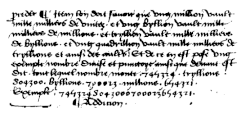 ordre ¶ Item lon doit savoir que ung million vault
mille milliers de unitez et ung byllion vault mille
milliers de millions et tryllion vault mille milliers
de byllions et ung quadrillion vault mille milliers de
tryllions et ainsi des aultres Et de ce en est pose ung
exemple nombre divise et punctoye ainsi que devant est
dit tout lequel nombre monte 745324 tryllions
804300 byllions 700023 millions 654321
Exemple 745324 804300 700023 654321
¶ Addicion